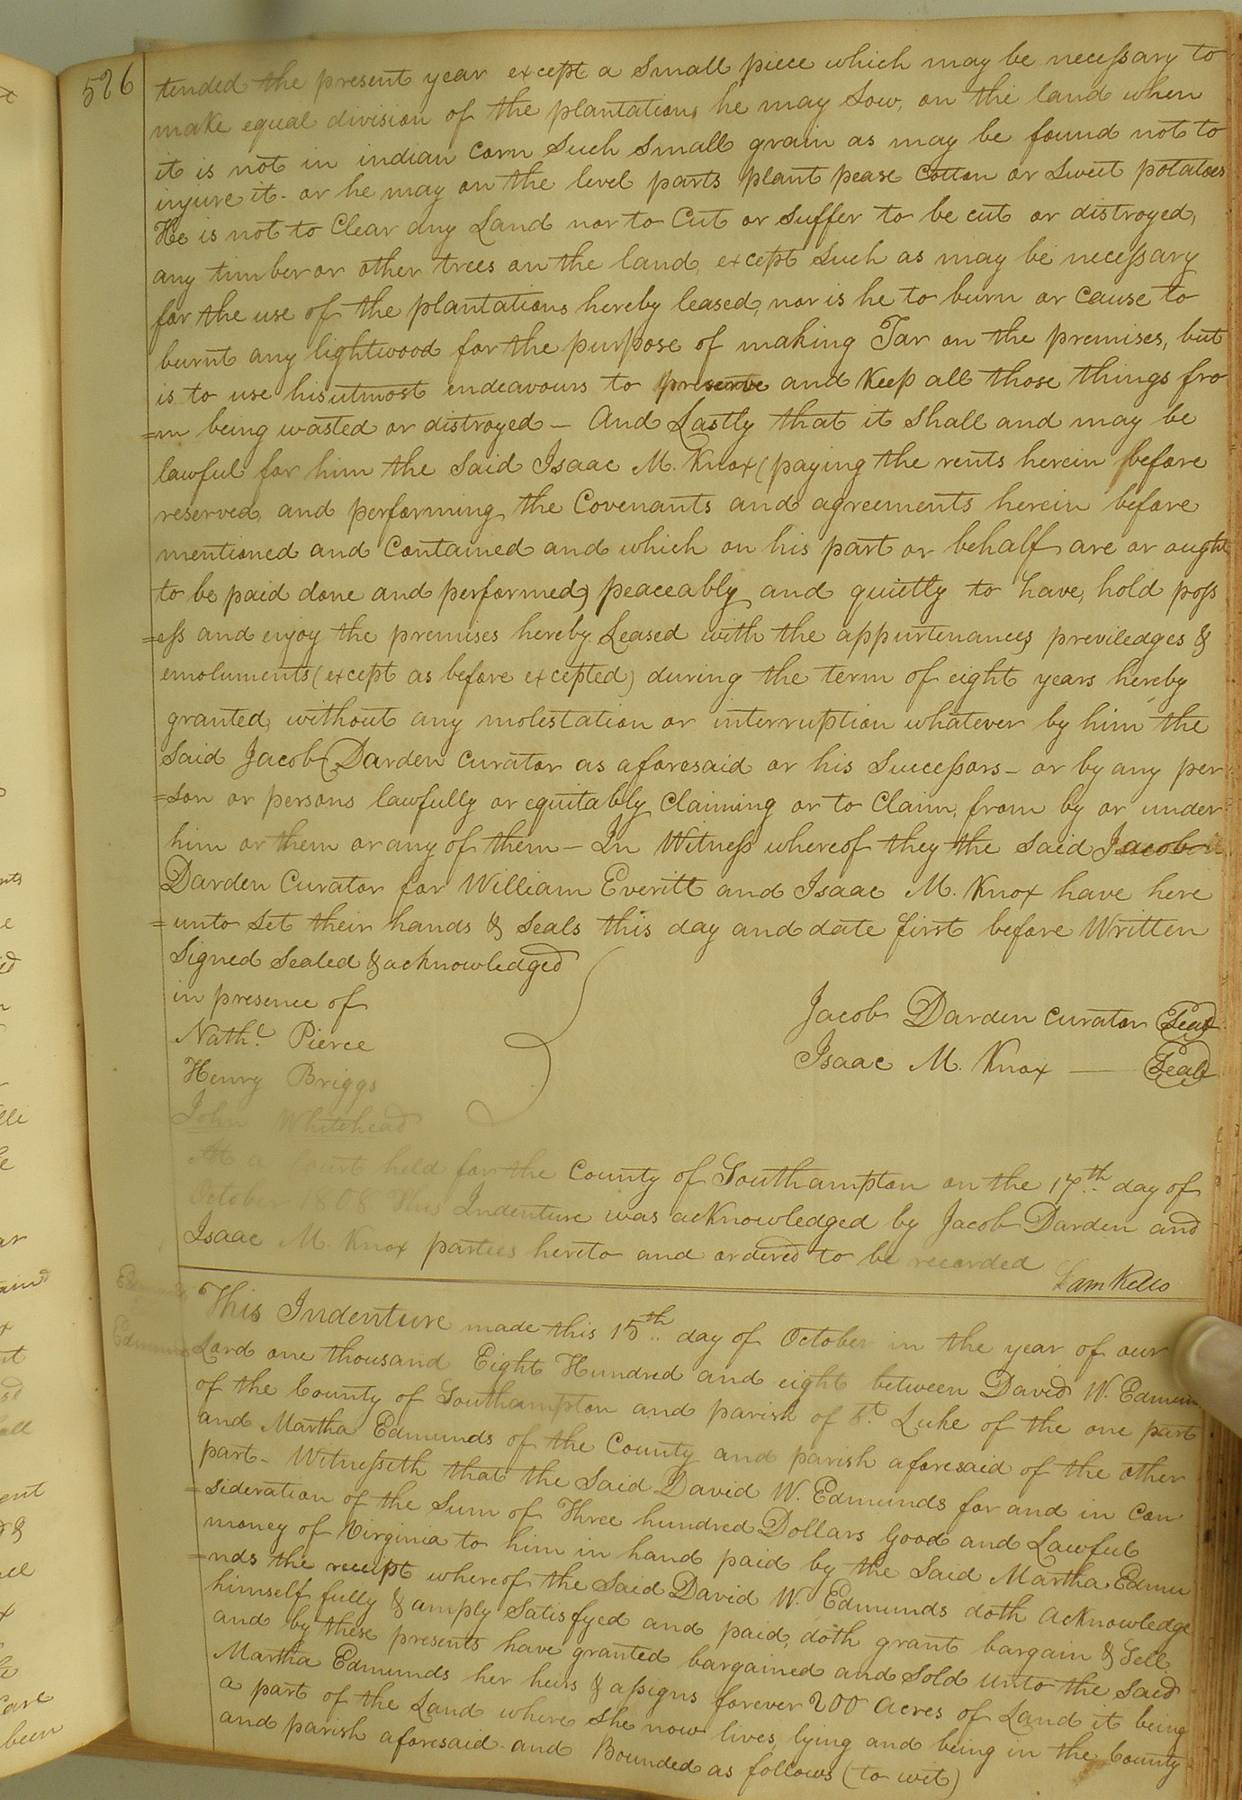 526
tended the present year except a Small piece which may be necessary to
make equal division of the plantations he may Sow, on the land when
it is not in indian corn Such Small grain as may be found not to
injure it - or he may on the level parts plant pease Cotton or Sweet potatoes
He is not to Clear any Land nor to Cut or Suffer to be cut or distroyed,
any timber or other trees on the land, except Such as may be necessary
for the use of the plantations hereby leased, nor is he to burn or cause to
burnt any lightwood for the purpose of making Tar on the premises, but
is to use his utmost endeavours to preserve and Keep all those things fro
=m being wasted or distroyed - And Lastly that it Shall and may be
lawful for him the Said Isaac M. Knox (paying the rents herein before
reserved, and performing the Covenants and agreements herein before
mentioned and Contained and which on his part or behalf are or ought
to be paid done and performed) peaceably and quietly to have, hold poss
=ess and enjoy the premises hereby Leased with the appurtenances previledges &
emoluments (except as before excepted) during the term of eight years hereby
granted, without any molestation or interruption whatever by him the
Said Jacob Darden Curator as aforesaid or his Successors - or by any per
=son or persons lawfully or equitably Claiming or to Claim, from by or under
him or them or any of them - In Witness whereof they the Said Jacob
Darden Curator for William Everitt and Isaac M. Knox have here
=unto Set their hands & Seals this day and date first before Written
Signed Sealed & acknowledged
in presence of
Nathl. Pierce
Henry Briggs
John Whitehead
Jacob Darden curator Seal
Isaac M. Knox — Seal
At a Court held for the County of Southampton on the 17th day of
October 1808 This Indenture was acKnowledged by Jacob Darden and
Isaac M. Knox parties hereto and ordered to be recorded
Sam Kello
Edmunds
Edmunds
This Indenture made this 15th day of October in the year of our
Lord one thousand Eight Hundred and eight between David W. Edmun
of the County of Southampton and parish of St. Luke of the one part
and Martha Edmunds of the County and parish aforesaid of the other
part - Witnesseth that the Said David W. Edmunds for and in Con
=sideration of the Sum of Three hundred Dollars Good and Lawful
money of Virginia to him in hand paid by the Said Martha Edmu
=nds the receipt whereof the Said David W. Edmunds doth AcKnowledge
himself fully & amply Satisfyed and paid, doth grant bargain & Sell
and by these presents have granted bargained and Sold unto the Said
Martha Edmunds her heirs & assigns forever 200 Acres of Land it being
a part of the Land where She now lives, lying and being in the County
and parish aforesaid and Bounded as follows (to wit)